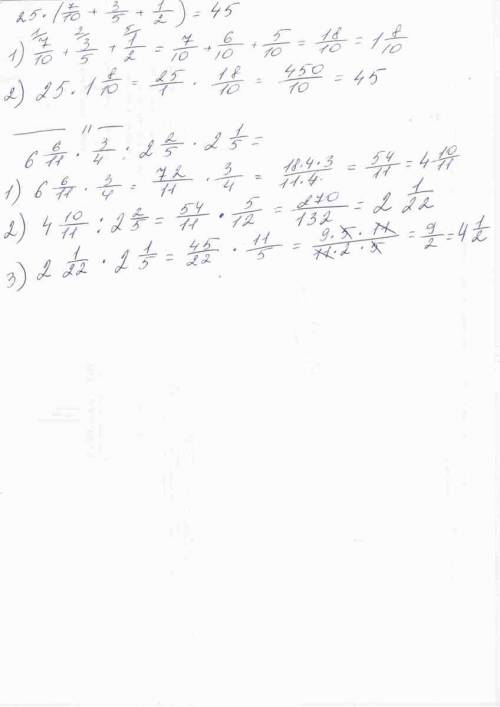 25 · (7/10 + 3/5 + 1/2) = 45
1) 7/10 + 3/5 + 1/2 = 7/10 + 6/10 + 5/10 = 18/10 = 1 8/10
2) 25 · 1 8/10 = 25/1 · 18/10 = 450/10 = 45
— " —
6 6/11 · 3/4 : 2 2/5 · 2 1/5 =
1) 6 6/11 · 3/4 = 72/11 · 3/4 = 18·4·3/11·4 = 54/11 = 4 10/11
2) 4 10/11 : 2 2/5 = 54/11 · 5/12 = 270/132 = 2 1/22
3) 2 1/22 · 2 1/5 = 45/22 · 11/5 = 9·5·11/11·2·5 = 9/2 = 4 1/2